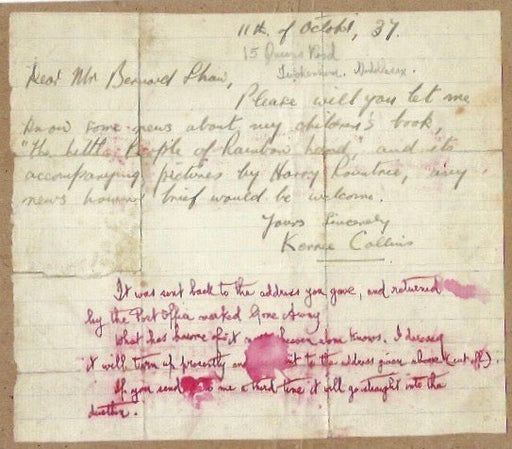 11th. of October, 37.
15 Road
Twickenham. Middlesex.
Dear Mr Bernard Shaw,
Please will you let me
know some news about my children's book,
"The Little People of Rainbow Land," and its
accompanying pictures by Harry Rountree, any
news however brief would be welcome.
Yours Sincerely
Collins
It was sent back to the address you gave, and returned
by the Post Office marked Gone Away
What has become of it now heaven alone knows. I
it will turn up presently and it to the address given above (cut off).
If you send to me a third time it will go straight into the
dustbin.